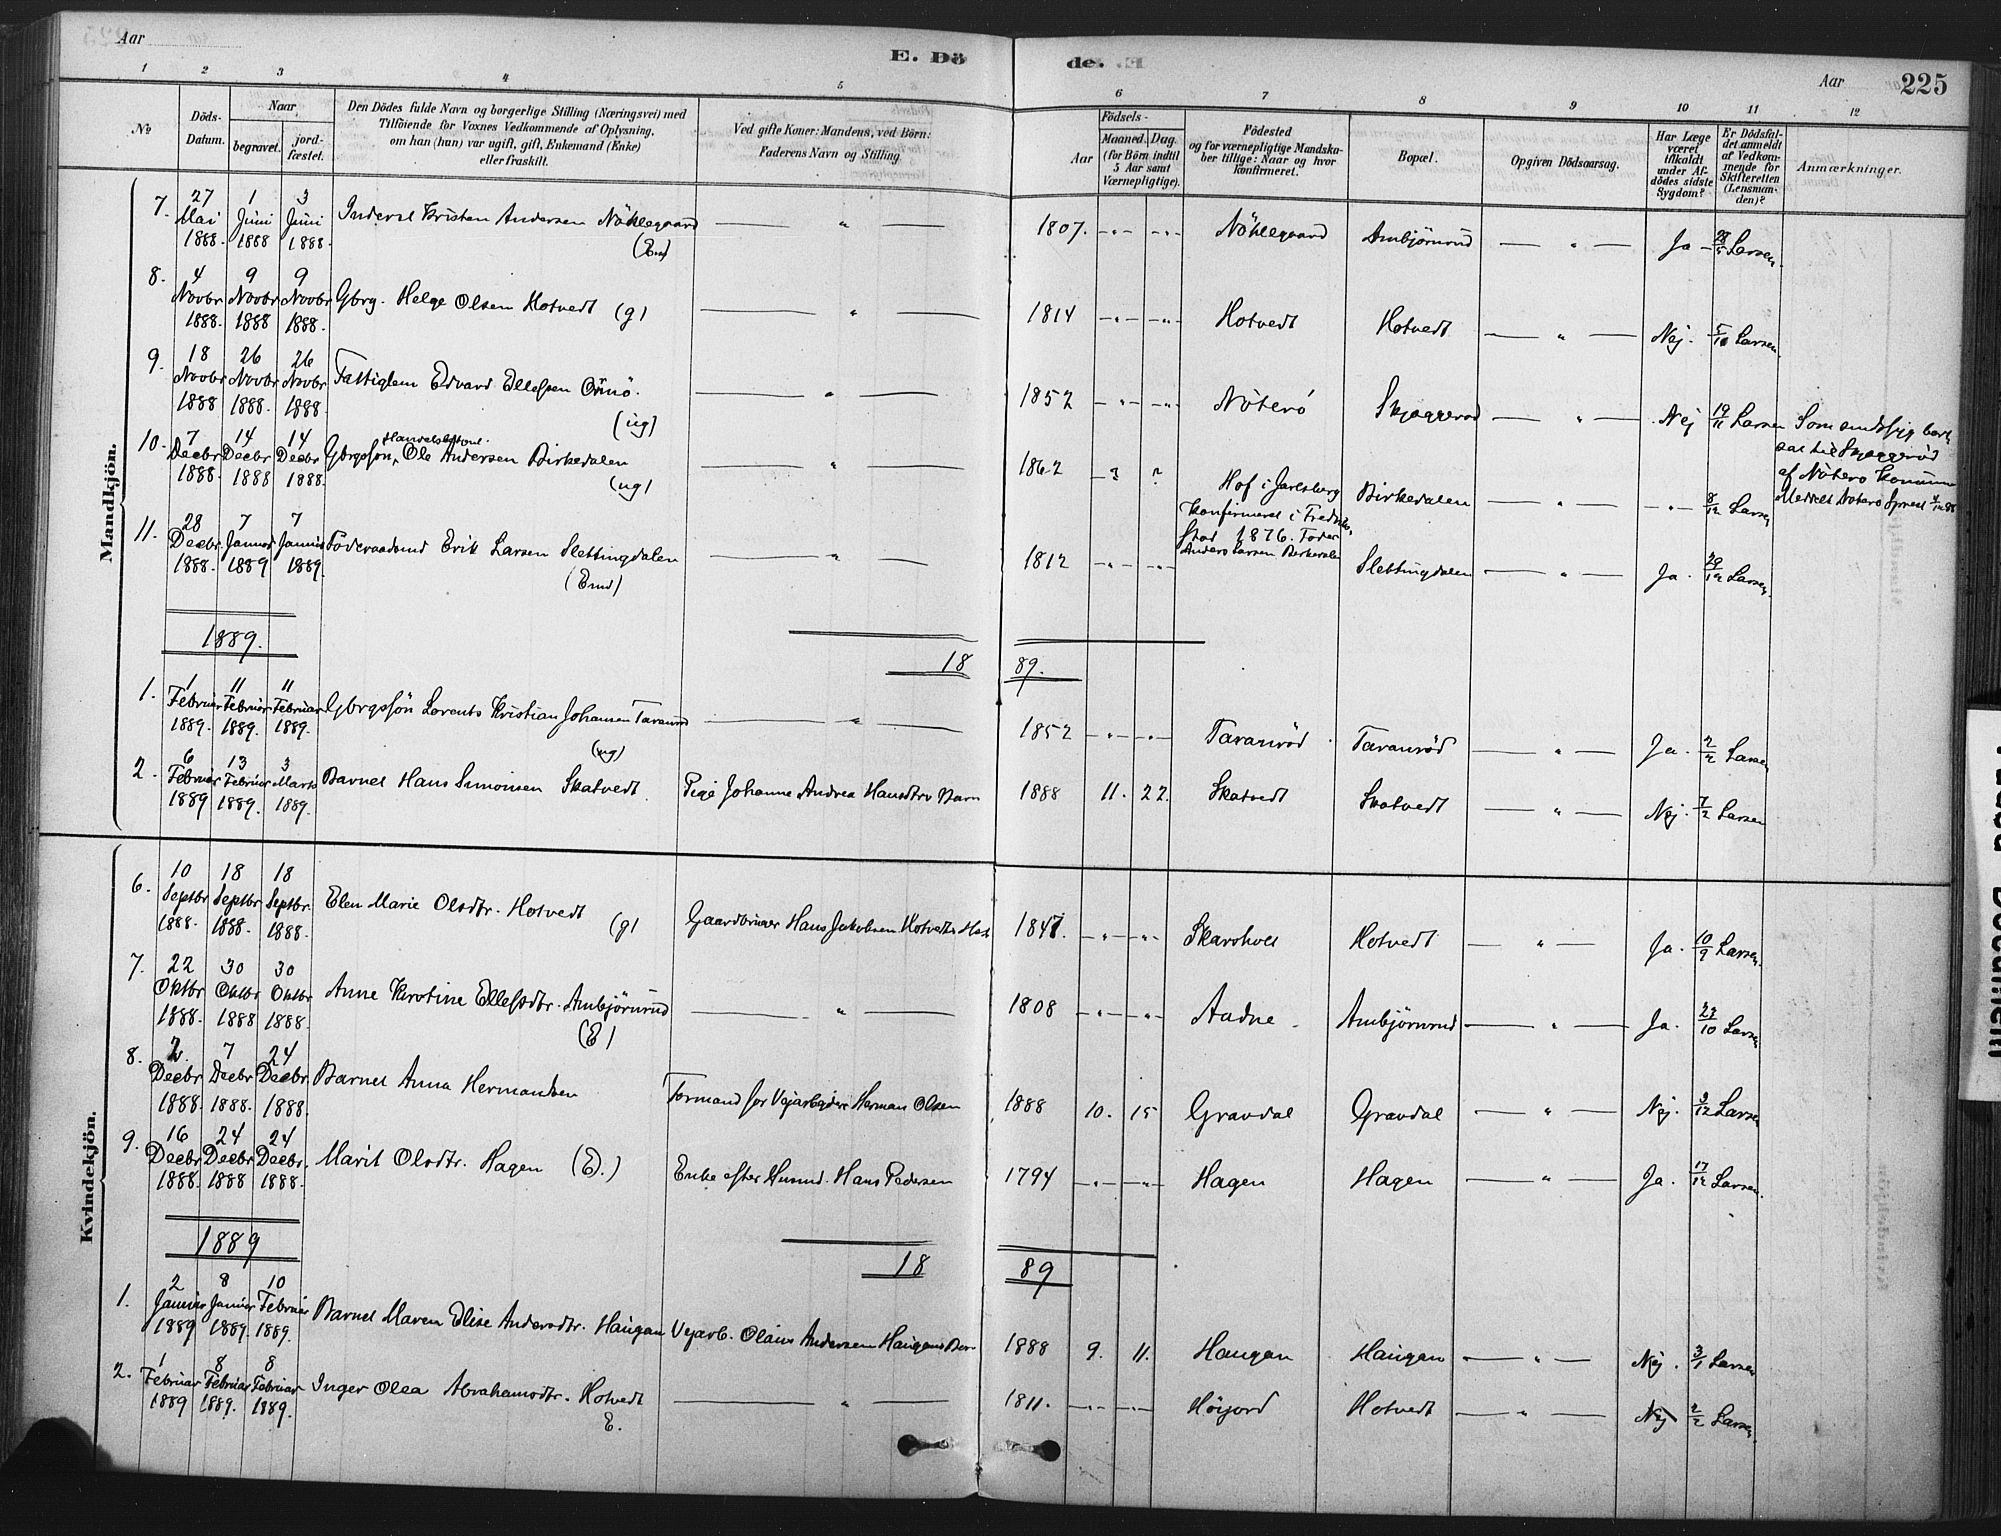 Aar
E. Dö
de.
Aar
225
1 2 3 4 5 6 7 8 9 10 11 12
No
Döds-Datum.
Naar
begravet.
jord-fæstet.
Den Dödes fulde Navn og borgerlige Stilling (Næringsvei) med
Tilföiende for Voxnes Vedkommende af Oplysning,
om han (hun) var ugift, gift, Enkemand (Enke)
eller fraskilt.
Ved gifte Koner: Mandens, ved Börn:
Faderens Navn og Stilling
Födsels-
Aar
Maaned. Dag.
(for Börn indtil
5 Aar samt
Værnepligtige).
Födested
og for værnepligtige Mandska-
ber tillige: Naar og hvor
konfirmeret.
Bopæl.
Opgiven Dödsaarsag.
Har Læge
været
tilkaldt
under Af-
dödes sidste
Sygdom?
Er Dödsfal-
det anmeldt
af Vedkom-
mende for
Skifteretten
(Lensman-
den)?
Anmærkninger.
Mandkjön.
7. 27 Mai 1888. 1 Juni 1888 3 Juni 1888. Inderst Kristen Andersen Nöklegaard (Em) — " — 1807. — " — — " — Nöklegaard Ambjörnrud — " — Ja — 28/5 Larsen.
8. 4 Novbr 1888. 9 Novbr 1888 9 Novbr 1888. Gbrg. Helge Olsen Hotvedt (g) — " — 1814 — " — — " — Hotvedt Hotvedt — " — Nej. Larsen.
9. 18 Novbr 1888 26 Novbr 1888. 26 Novbr 1888. Fattiglem Edvard Ellefsen Ormö. (ug) — " — 1852 — " — — " — Nöterö Skjæggerød — " — Nej 19/11 Larsen Som sindssyg bort
sat til Skjæggerød
af Nöterö Kommune
Meddelt Nöterö
10. 7 Decbr 1888. 14 Decbr 1888 14 Decbr 1888. Gbrgssön, Ole Andersen Birkedalen (ug) — " — 1862 3 ? Hof i Jarlsberg
Konfirmeret i Fredriks-
stad 1876. Fader
Anders Larsen Birkedalen
Birkedalen — " — — " — 8/12 Larsen
11. 28 Decbr. 1888. 7 Januar 1889 7 Januar 1889. Föderaadsmd Erik Larsen Slettingdalen (Emd) — " — 1812 — " — — " — Slettingdalen — " — Ja. 29/12 Larsen.
1889.
18 89.
1. 1 Februar 1889. 11 Februar 1889. 11 Februar 1889. Gbrgssön Lorents Kristian Johansen Taranrød (ug) — " — 1852 — " — — " — Taranrød Taranrød — " — Ja. 2/2 Larsen
2. 6 Februar 1889 13 Februar 1889. 3 Marts 1889. Barnet Hans Simonsen Skatvedt. Pige Johanne Andrea Hansdtrs Barn 1888 11. 22. Skatvedt Skatvedt — " — Nej. 7/2 Larsen
Kvindekjön.
6. 10 Septbr 1888. 18 Septbr 1888. 18 Septbr. 1888. Elen Marie Olsdtr. Hotvedt (g) Gaardbruger Hans Jakobsen Hotvedts 1847. — " — — " — Skarsholt Hotvedt — " — Ja. 10/9 Larsen.
7. 22 Oktbr 1888. 30 Oktbr 1888 30 Oktbr 1888. Anne Kirstine Ellefsdtr. Ambjörnrud (E) — " — 1808 — " — — " — Aadne Ambjörnrud — " — Ja. 23/10 Larsen
8. 2. Decbr 1888. 7 Decbr 1888. 24 Decbr. 1888. Barnet Anna Hermandsen Formand for Vejarbejdere Herman Olsen 1888 10. 15 Gravdal Gravdal — " — Nej. 3/12 Larsen
9. 16 Decbr 1888. 24 Decbr 1888 24 Decbr. 1888. Marit Olsdtr. Hagen (E.) Enke efter Husmd. Hans Pedersen 1794 — " — — " — Hagen Hagen — " — Ja. 17/12 Larsen.
1889
18 89
1. 2 Januar 1889 8 Januar 1889. 10 Februar 1889. Barnet Maren Elise Andersdtr. Haugan Vejarb. Olaus Andersen Haugans Barn 1888 9. 11. Haugan Haugan — " — Nej. 3/1 Larsen
2. 1 Februar 1889 8 Februar 1889. 8 Februar 1889. Inger Olea Abrahamsdtr. Hotvedt E. — " — 1811. — " — — " — Höijord Hotvedt — " — Nej 2/2 Larsen.